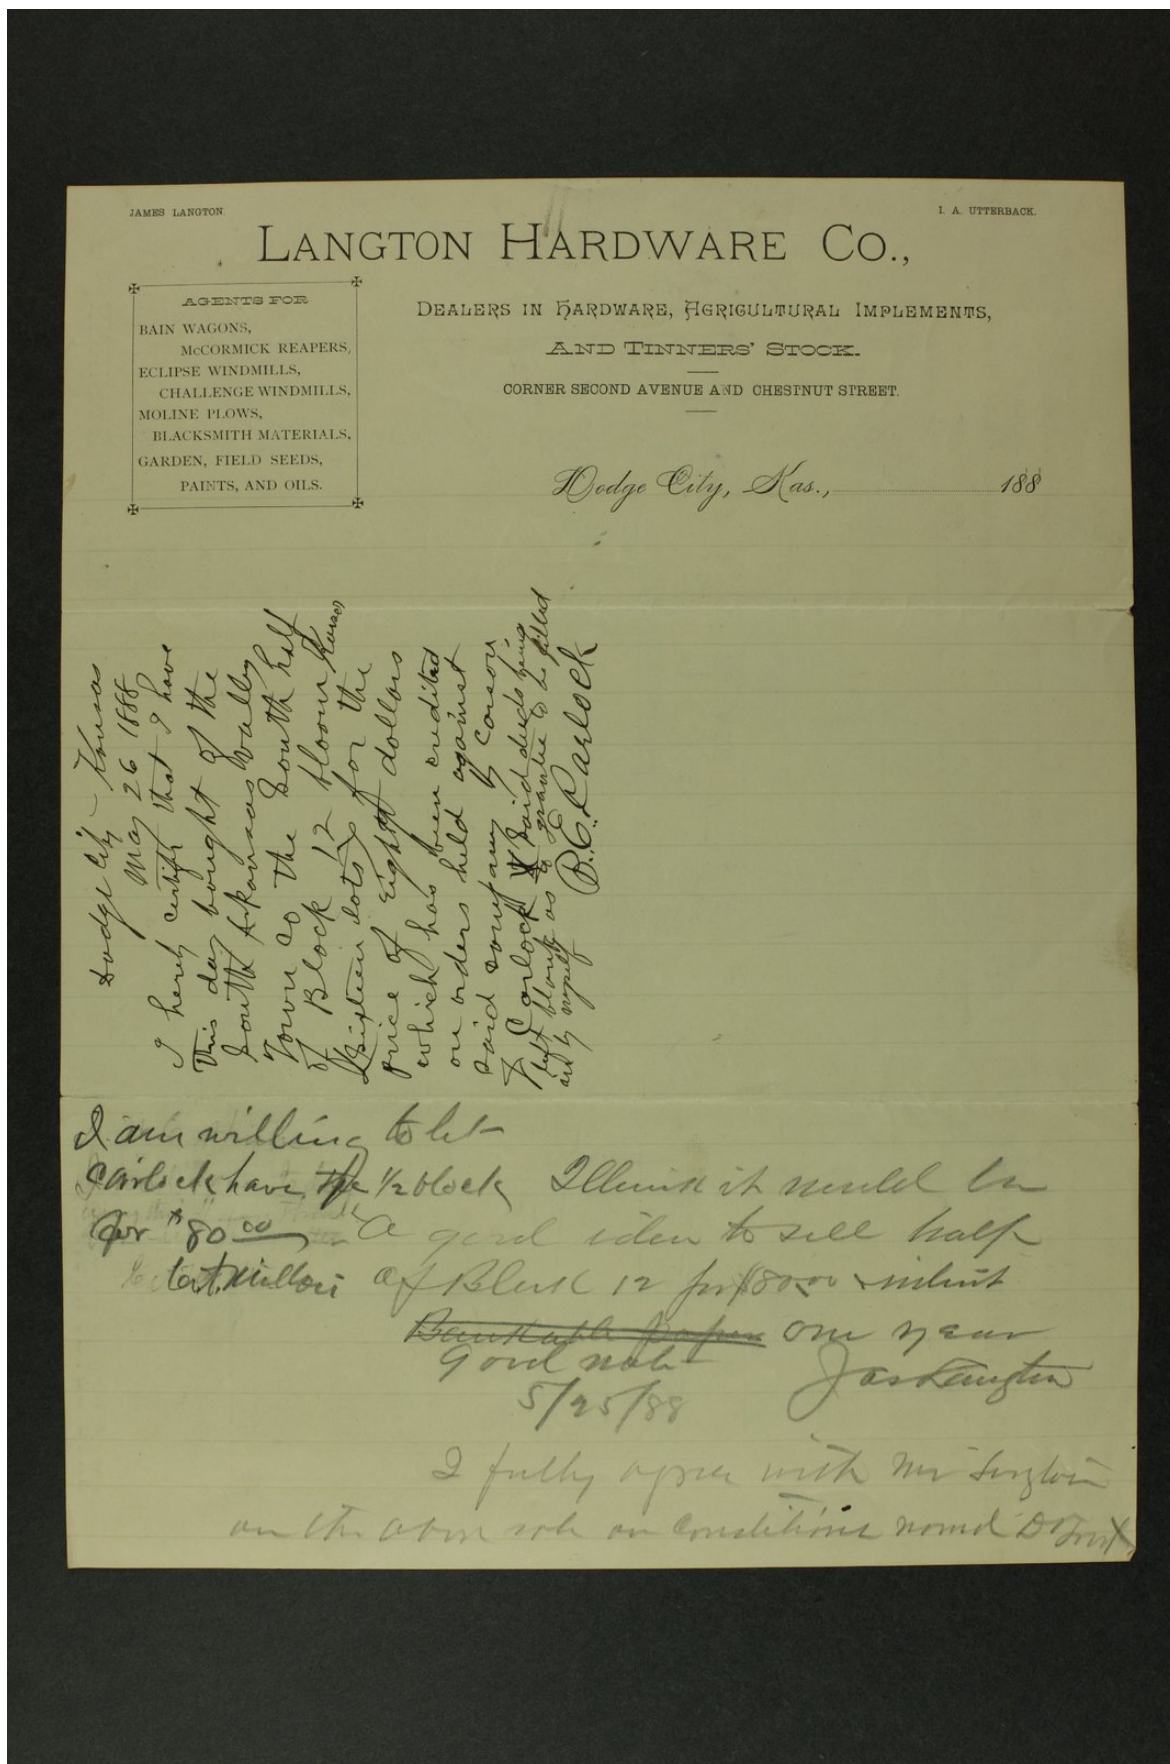 JAMES LANGTON.
I. A. UTTERBACK.
LANGTON HARDWARE CO.,
AGENTS FOR
BAIN WAGONS,
McCORMICK REAPERS,
ECLIPSE WINDMILLS,
CHALLENGE WINDMILLS,
MOLINE PLOWS,
BLACKSMITH MATERIALS,
GARDEN, FIELD SEEDS,
PAINTS, AND OILS.
DEALERS IN HARDWARE, AGRICULTURAL IMPLEMENTS,
AND TINNERS' STOCK.
CORNER SECOND AVENUE AND CHESTNUT STREET.
Dodge City, Kas., 188
Dodge City Kansas
May 26 1888
I hereby certify that I have
this day bought of the
South Arkansas Valley
Town Co the South half
of Block 12 bloom Kansas
Sixteen lots for the
price of Eighty dollars
which has been credited
on orders held against
said company by
Carlock said deeds being
left blank as to grantee to be filled
in by myself
B.E. Carlock
I am willing to let
Carlock have the 1/2 block
for $80 00
I think it would be
a good idea to sell half
of Block 12 for $80.00 without
Bankable paper one year
Good note
Jas Langton
5/25/88
I fully agree with Mr Langton
on the above sale on conditions named